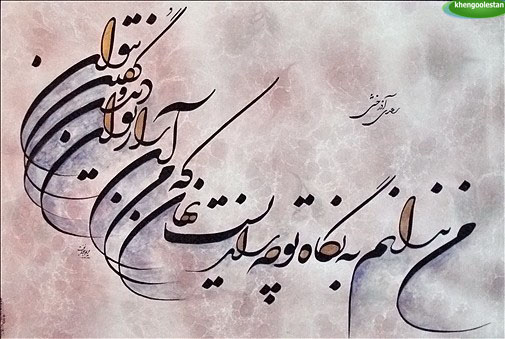 khengoolestan
رعدی آذرخشی
من ندانم به نگاه تو چه رازیست نهان
که من آن راز توان دیدن و گفتن نتوان